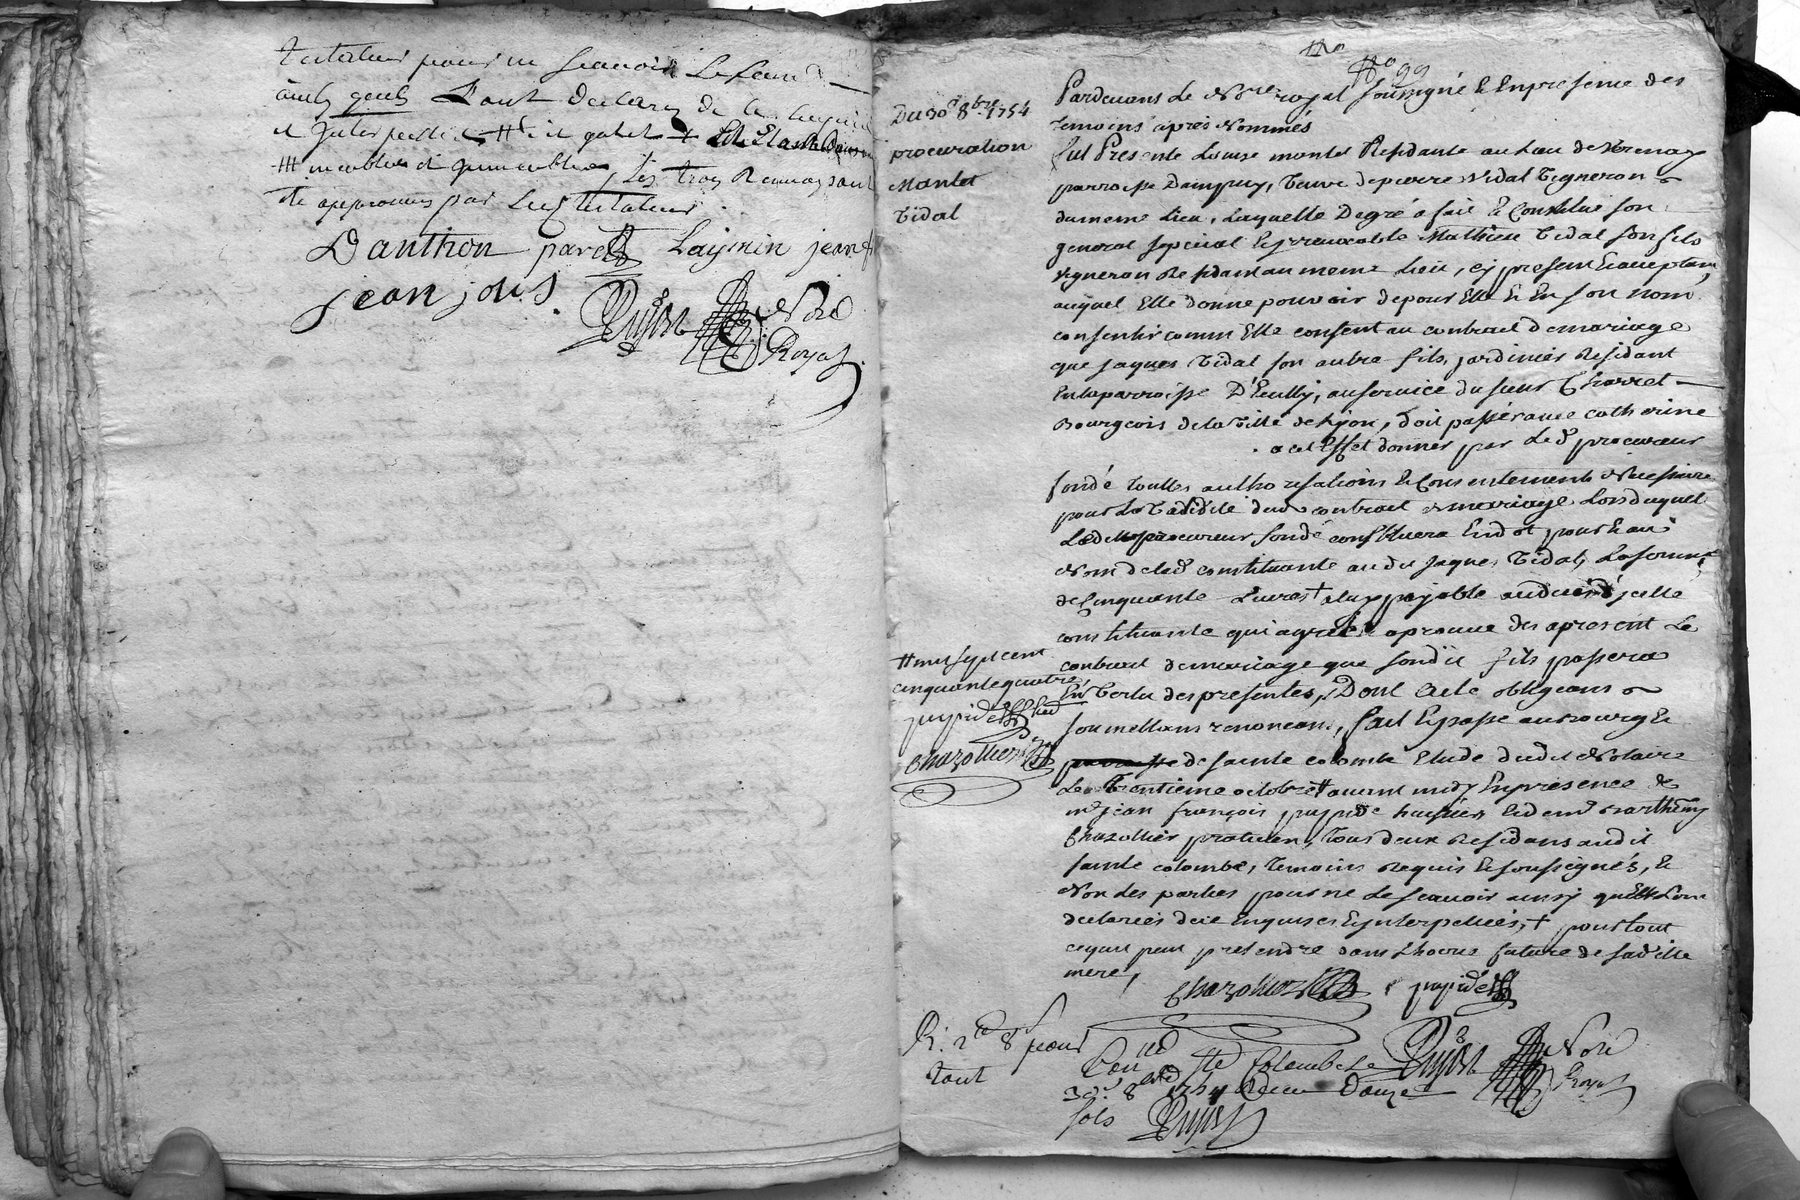 testateur pour ne scavoir Le faire
ainsy quils L'ont declaré de ce enquis
et Interpellé
meubles et immeubles, Les trois Renvoy sont
approuvés par Les testateurs
Danthon paret Laymin jean
jean jolis
Guyot Nore
Royal
N.o 99
Du 30e 8bre 1754
procuration
Montet
Vidal
Pardevans Le Nore royal soussigné & En presence des
temoins après Nommés
fut Presente Louise montet Residante au Lieu de Verenay
parroisse Dampuy, veuve de pierre Vidal vigneron
du meme Lieu, Laquelle De gré a fait & Constitué son
general special & irrevocable Mathieu Vidal son fils
vigneron Residant au meme Lieu, cy present & acceptant,
auquel Elle donne pouvoir de pour Elle & En son nom
consentir comm Elle consent au contract de mariage
que jaques Vidal son autre fils, jardinier Residant
En la parroisse D'Eculli, au service du sieur Charret
Bourgeois de la Ville de Lyon, doit passer avec catherine
a cet Effet donner par Led procureur
fondé touttes authorisations & Consentements Necessaire
pour La Validité dud contract de mariage Lors duquel
Led procureur fondé constituera En dot, pour & au
Nom de lad constituante audit jaques Vidal, La somme
de Cinquante Livres + payable jcelle
constituante qui agrée & aprouve des apresent Le
contract de mariage que sondit fils passera
En Vertu des presentes, Dont Acte obligeans
soumettans renoncans, fait & passé au Bourg &
parroisse de sainte colombe Etude dudit Notaire
Le Trentieme octobre # avant midy En presence de
me jean françois pupide huissier & de me Barthemy
Chazollier praticien, Tous deux Residans audit
sainte colombe, temoins Requis & soussignés, &
Non les parties pour ne Le scavoir ainsy qu'Elles L'ont
declarées de ce Enquises & jnterpellées, + pour tout
ce quil peut pretendre dans L'hoirie future de sadite
mere,
# mil sept cent
cinquante quatre,
pupide
Chazollier
Chazollier pupide
R. 2d 8s pour
tout
Con lé a Ste Colombe Le Guyot Nore
30e 8bre 1754 Recu Douze Royal
sols Guyot